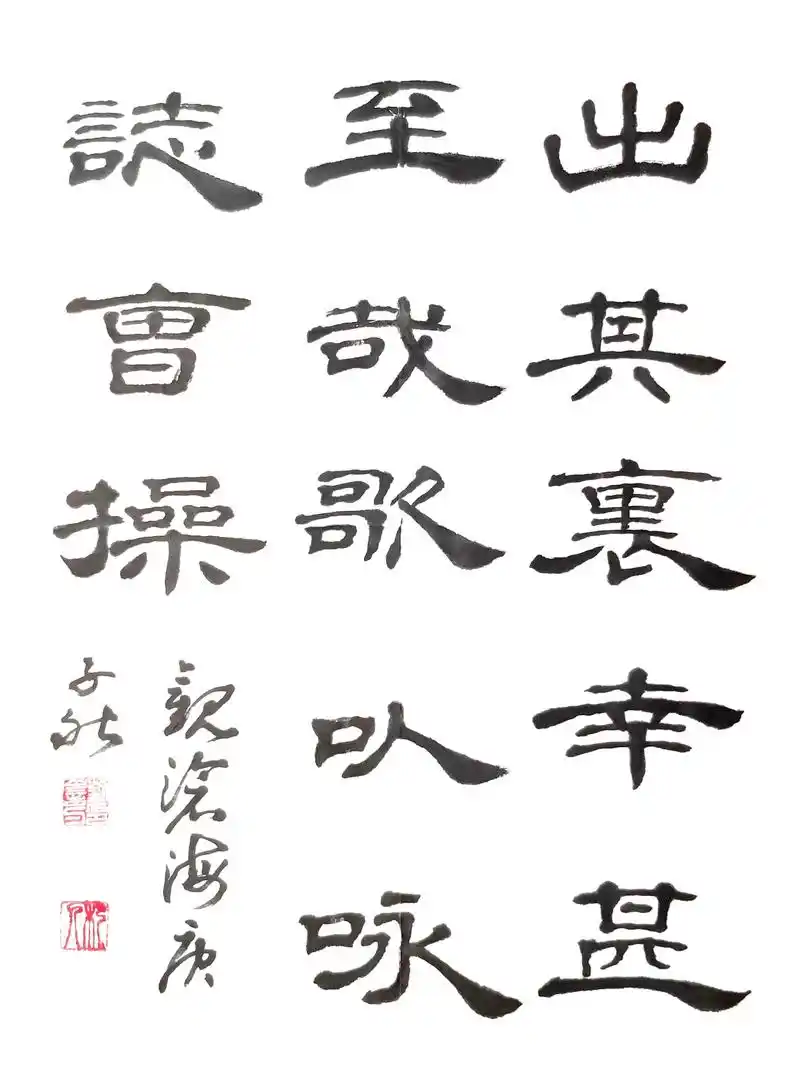 出其裏幸甚
至哉歌㕥咏
誌曺操
觀滄海庚
子秋